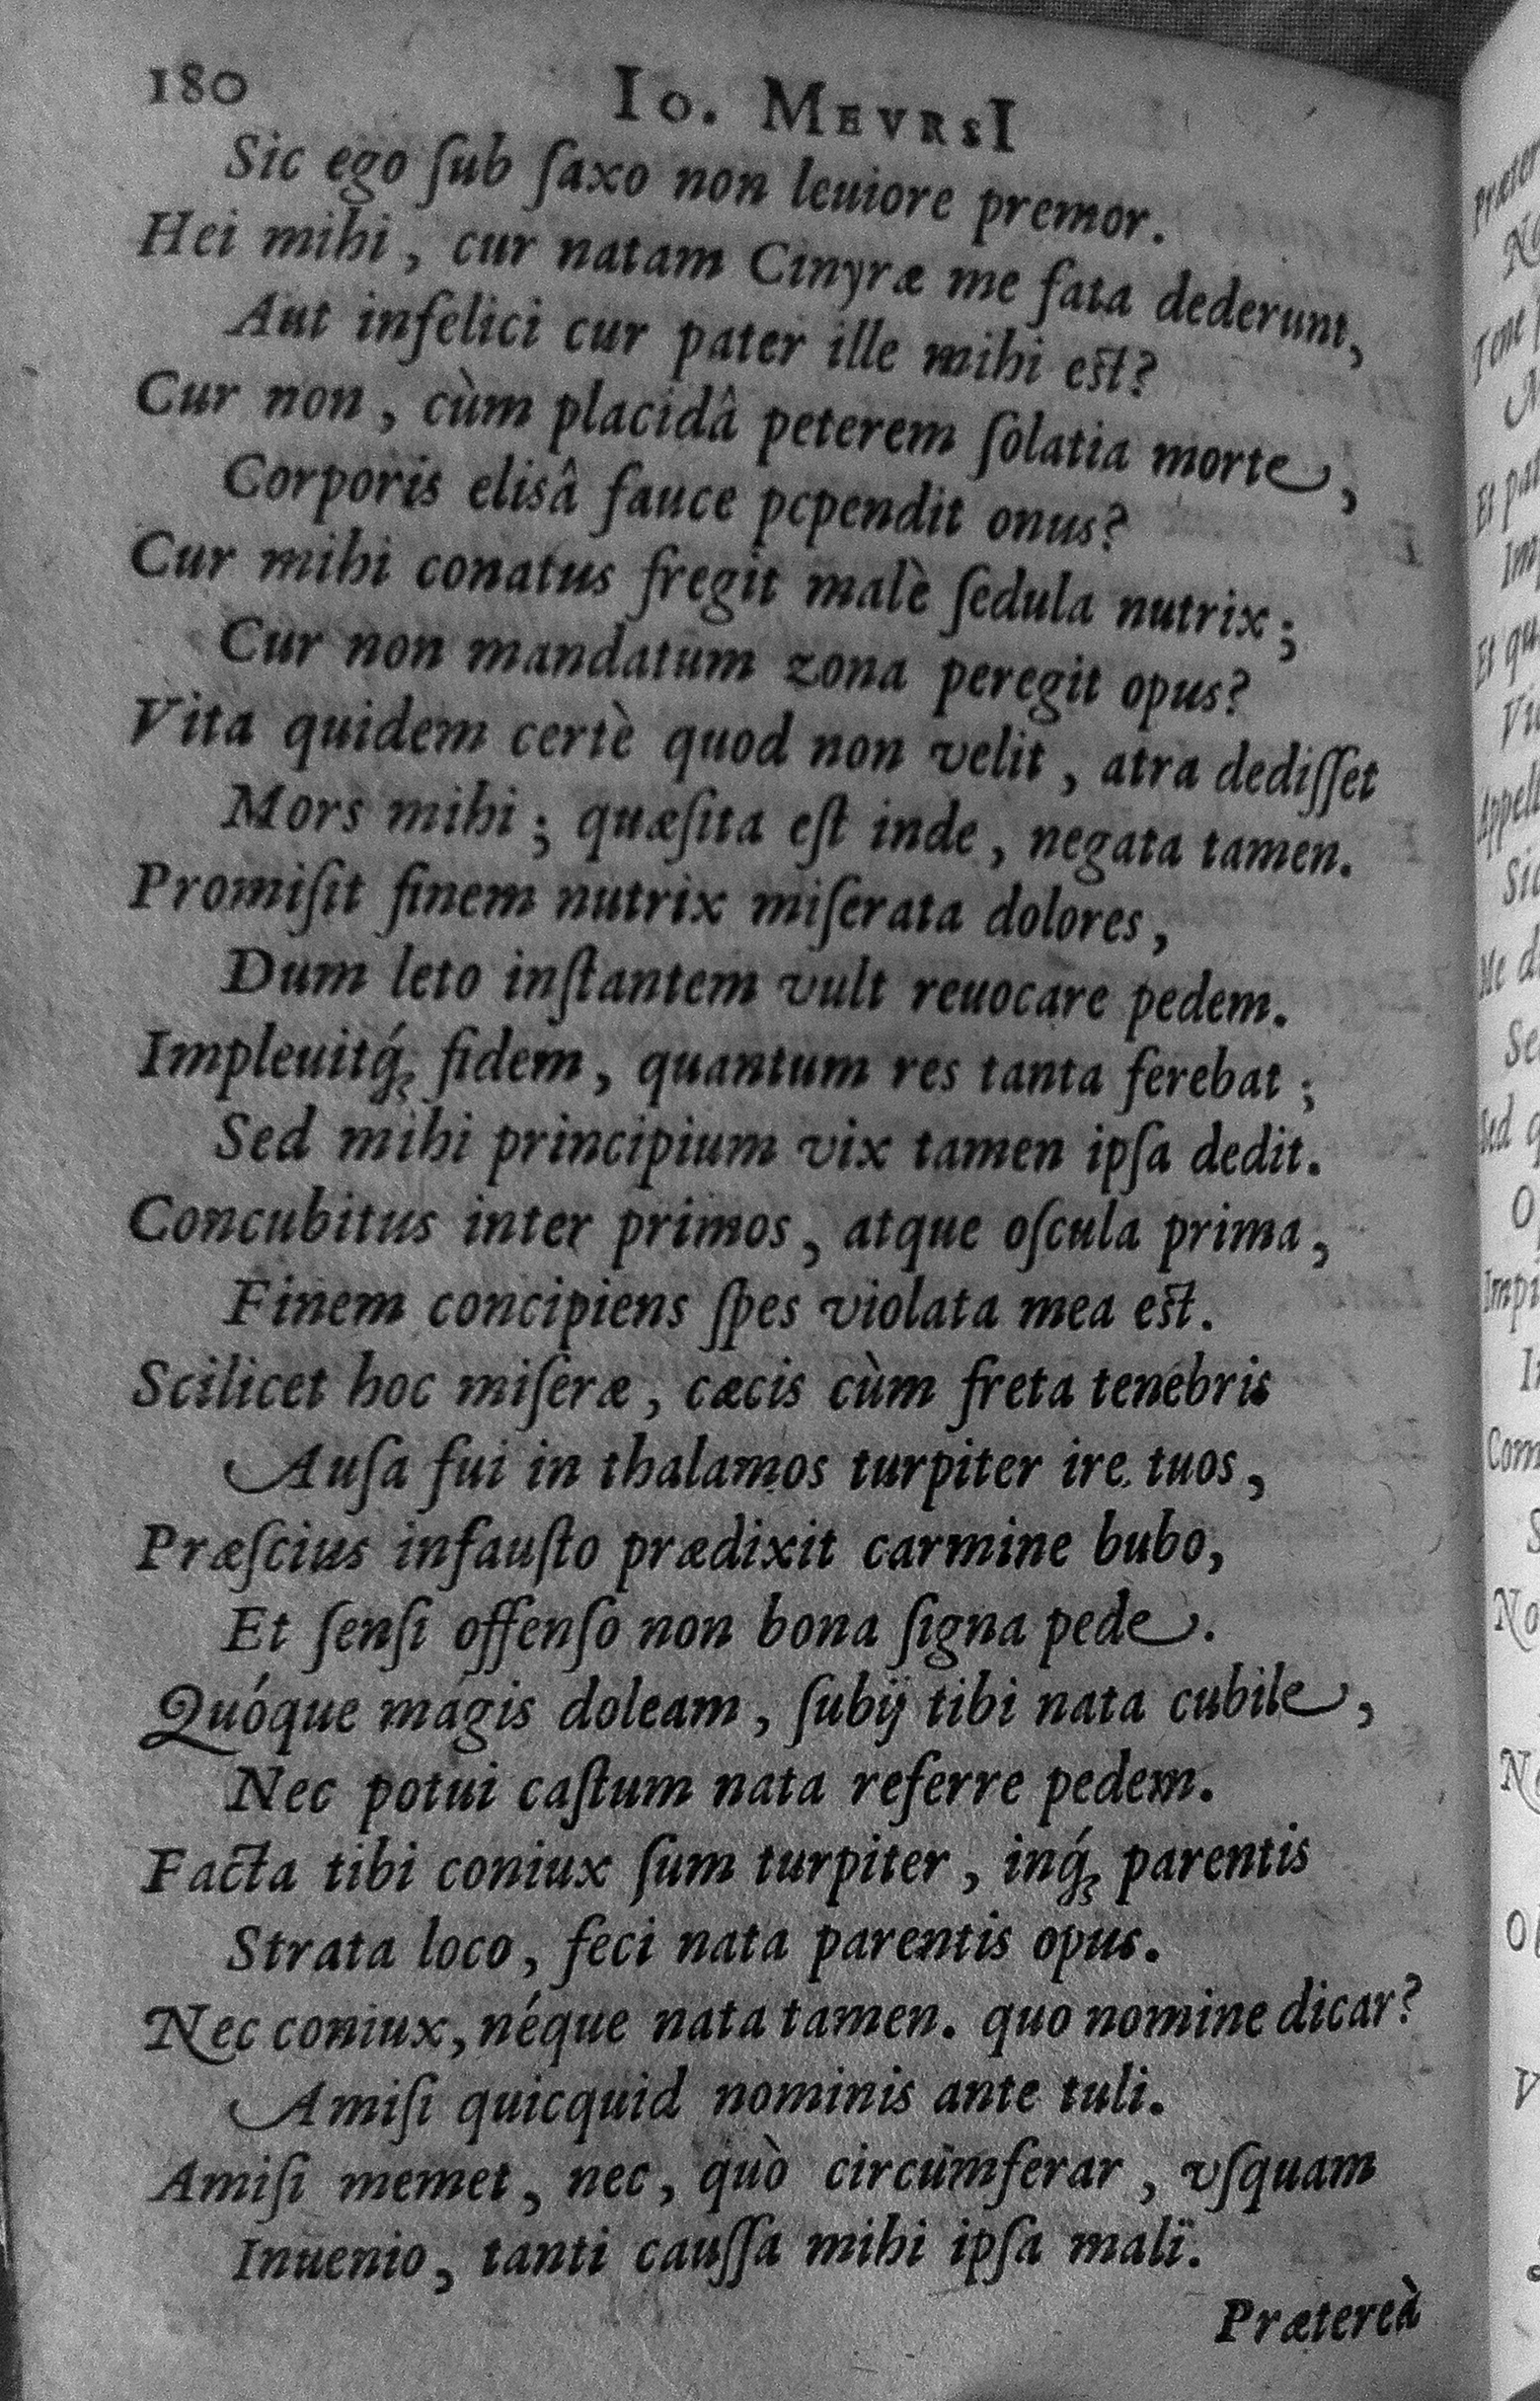 180 Io. MEVRSI
Sic ego ſub ſaxo non leuiore premor.
Hei mihi, cur natam Cinyræ me fata dederunt,
Aut infelici cur pater ille mihi est?
Cur non, cùm placidâ peterem ſolatia morte,
Corporis elisâ fauce pependit onus?
Cur mihi conatus fregit malè ſedula nutrix;
Cur non mandatum zona peregit opus?
Vita quidem certè quod non velit, atra dediſſet
Mors mihi; quæſita eſt inde, negata tamen.
Promiſit finem nutrix miſerata dolores,
Dum leto inſtantem vult reuocare pedem.
Impleuitq́ꝫ fidem, quantum res tanta ferebat;
Sed mihi principium vix tamen ipſa dedit.
Concubitus inter primos, atque oſcula prima,
Finem concipiens ſpes violata mea est.
Scilicet hoc miſeræ, cæcis cùm freta tenebris
Auſa fui in thalamos turpiter ire tuos,
Præſcius infauſto prædixit carmine bubo,
Et ſenſi offenſo non bona ſigna pede.
Quóque magis doleam, ſubij tibi nata cubile,
Nec potui caſtum nata referre pedem.
Facta tibi coniux ſum turpiter, inq́ꝫ parentis
Strata loco, feci nata parentis opus.
Nec coniux, néque nata tamen. quo nomine dicar?
Amiſi quicquid nominis ante tuli.
Amiſi memet, nec, quò circumferar, vſquam
Inuenio, tanti cauſſa mihi ipſa mali.
Prætereà